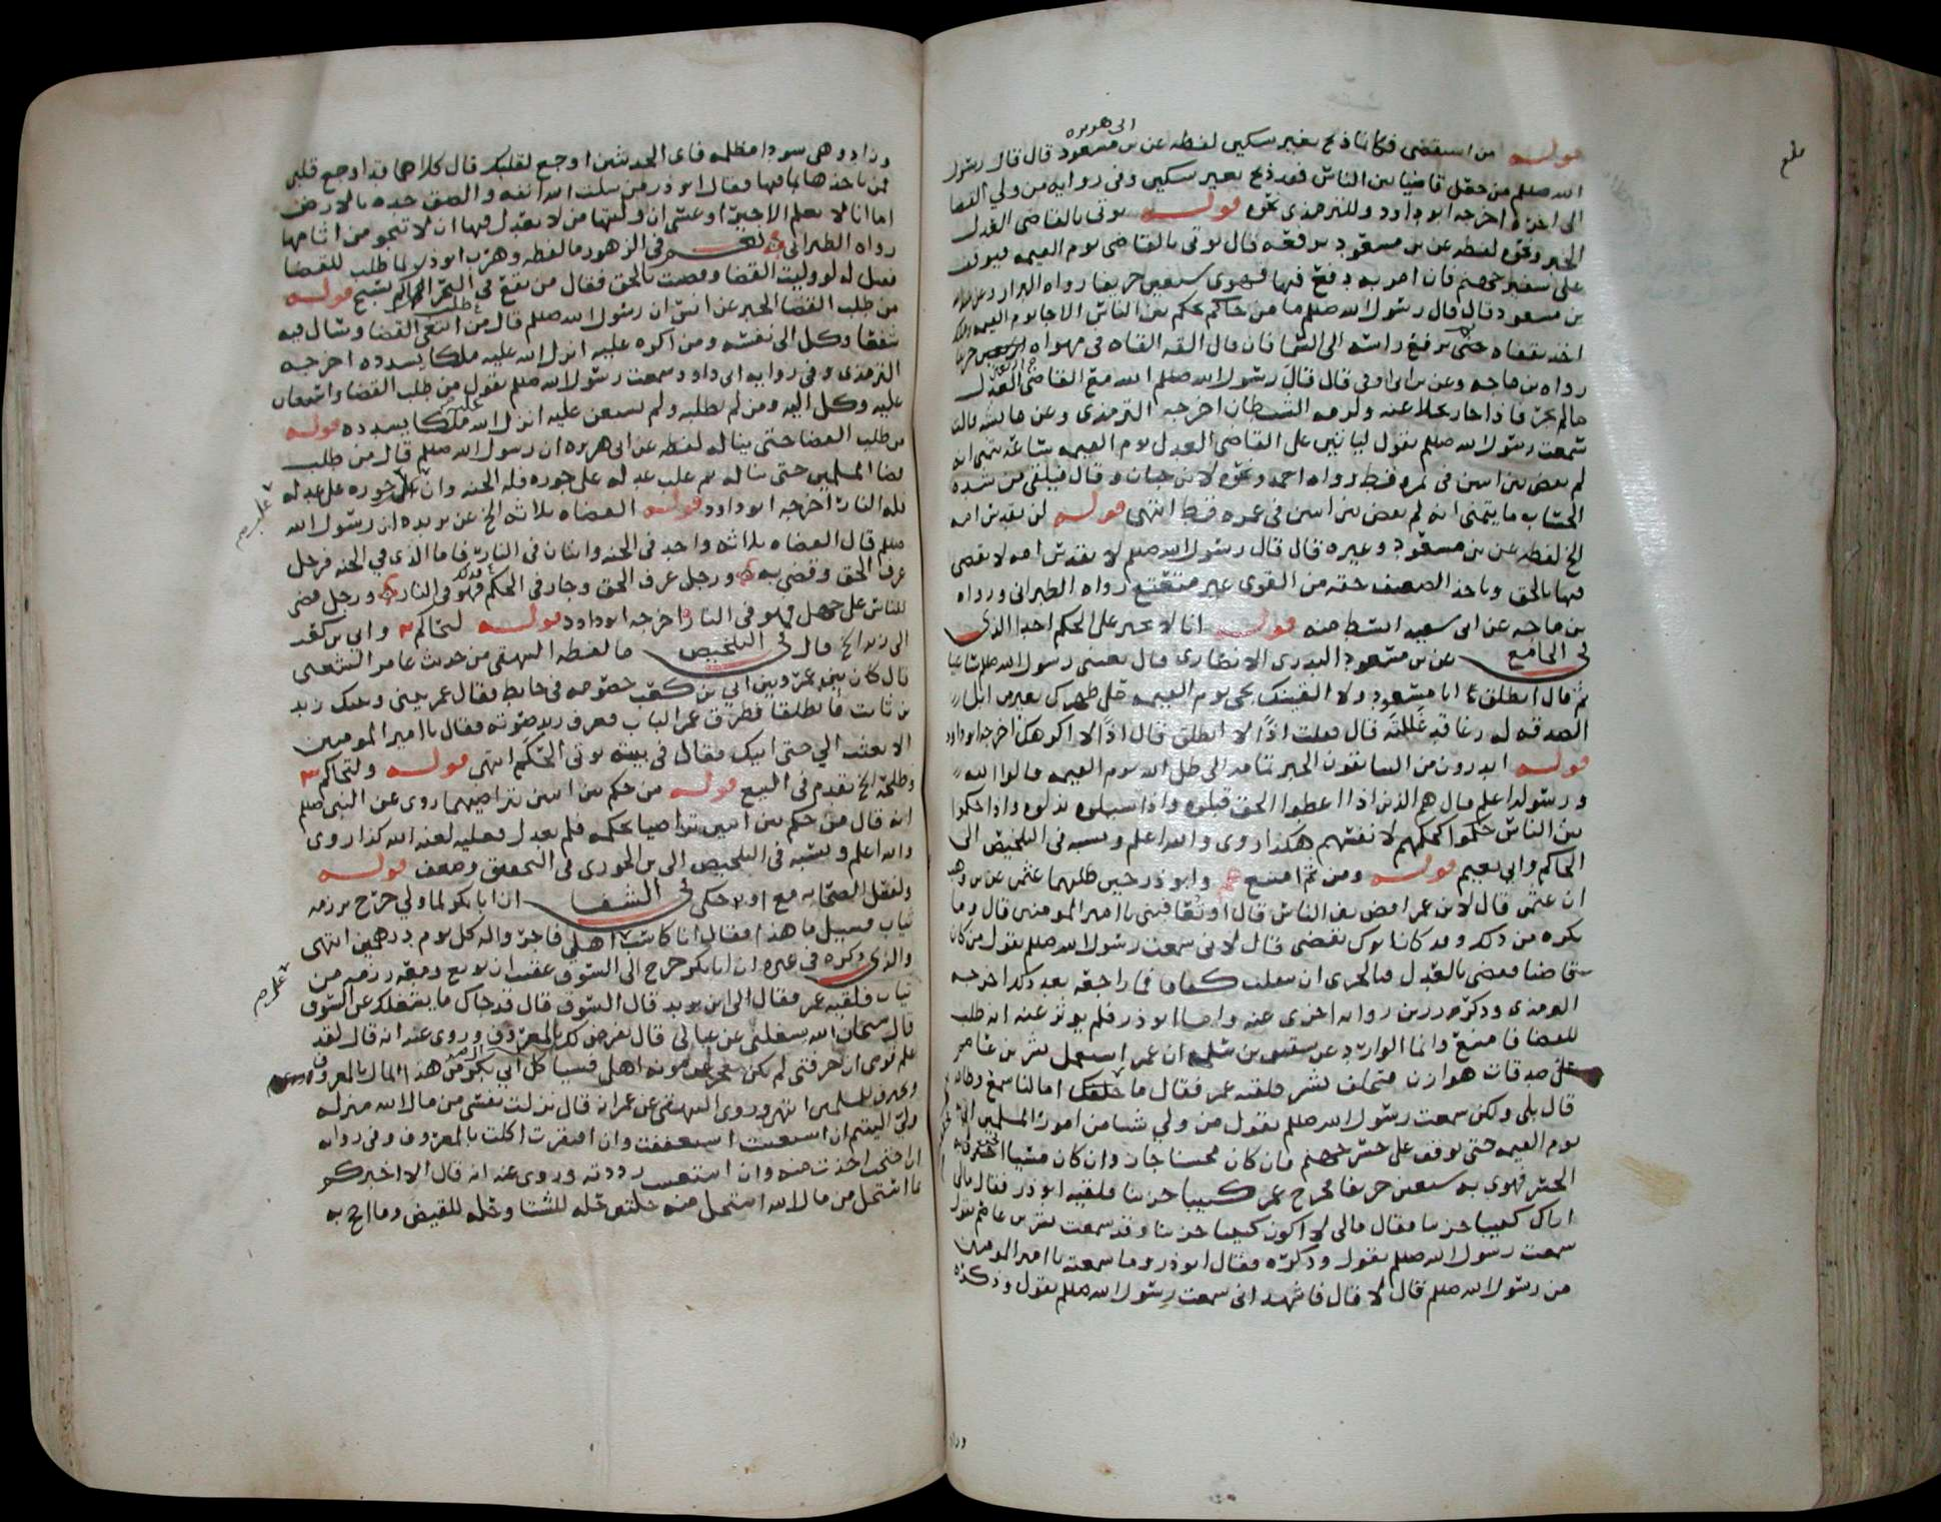 قوله من استقضى فكانما ذبح بغير سكين لفظه عن بن مسعود ابى هريره قال قال رسول
الله صللم من جعل قاضيا بين الناس فقد ذبح بغير سكين وفى روايه من ولي القضا
الى اخره اخرجه ابو داود وللترمذي نحوه قوله يوتى بالقاضى العدل
الخبر ونحوه لفظه عن بن مسعود يرفعه قال يوتى بالقاضى يوم القيمه فيوقف
على شفير جهنم فان امر به دفع فيها فهوى سبعين خريفا رواه البزار وعن
بن مسعود قال قال رسول الله صللم ما من حاكم يحكم بين الناس الا جا يوم القيمه وملك
اخذ بقفاه حتى يرفع راسه الى السما فان قال القه القاه فى مهواه اربعين خريفا
رواه بن ماجه وعن بن ابى اوفى قال قال رسول الله صللم الله مع القاضى العدل
مالم يجر فاذا جار تخلا عنه ولزمه الشيطان اخرجه الترمذى وعن عايشه قالت
سمعت رسول الله صللم يقول لياتين على القاضى العدل يوم القيمه ساعه يتمنى انه
لم يقض بين اثنين فى تمره قط رواه احمد ونحوه لابن حبان وقال فيلقى من شده
الحساب ما يتمنى انه لم يقض بين اثنين فى عمره قط انتهى قوله لن يقدس امه
الخ لفظه عن بن مسعود وغيره قال قال رسول الله صللم لا يقدس امه لا يقضى
فيها بالحق وياخذ الضعيف حقه من القوى غير متعتع رواه الطبرانى ورواه
بن ماجه عن ابى سعيد ابسط منه قوله انا لا نجبر على الحكم احدا الذى
فى الجامع عن بن مسعود البدرى الانصارى قال بعثنى رسول الله صللم ساعيا
ثم قال انطلق يا ابا مسعود ولا الفينك تجى يوم القيمه على ظهرك بعير من ابل
الصدقه له رغا قد غللته قال فقلت اذًا لا انطلق قال اذًا لا اكرهك اخرجه ابو داود
قوله المبادرون من السابقون الخبر تمامه الى ظل الله يوم القيمه قالوا الله
ورسوله اعلم قال هم الذين اذا اعطوا الحق قبلوه واذا سيلوه بذلوه واذا حكموا
بين الناس حكموا كحكمهم لانفسهم هكذا روى والله اعلم ونسبه فى التلخيص الى
الحاكم وابى نعيم قوله ومن ثم امتنع وابو ذر حين طلبهما عثمن عن بن وهب
ان عثمن قال لابن عمر اقض بين الناس قال او تعافينى يا امير المومنين قال وما
تكره من ذلك وقد كان ابوك يقضى قال لانى سمعت رسول الله صللم يقول من كان
قاضيا فقضى بالعدل فبالحرى ان ينقلب كفافا فما راجعه بعد ذلك اخرجه
الترمذى وذكره رزين روايه اخرى عنه واما ابو ذر فلم يوثر عنه انه طلب
للقضا فامتنع وانما الوارد عن شقيق بن سلمه ان عمر استعمل بشر بن عاصم
على صدقات هوازن فتخلف بشر فلقيه عمر فقال ما خلفك اما لنا سمع وطاعه
قال بلى ولكن سمعت رسول الله صللم يقول من ولي شيا من امور المسلمين اتى
يوم القيمه حتى يوقف على جسر جهنم فان كان محسنا جاز وان كان مسيا انخرق به
الجسر فهوى به سبعين خريفا فخرج عمر كييبا حزينا فلقيه ابو ذر فقال مالى
اراك كييبا حزينا فقال مالى لا اكون كييبا حزينا وقد سمعت بشر بن عاصم يقول
سمعت رسول الله صللم يقول وذكره فقال ابو ذر وما سمعته يا امير المومنين
من رسول الله صللم قال لا قال فاشهد انى سمعت رسول الله صللم يقول وذكره
وزاد
وزاد وهى سودا مظلمه فاى الحديثين اوجع لقلبك قال كلاهما قد اوجع قلبى
فمن ياخذها بما فيها فقال ابو ذر من سلت الله انفه والصق خده بالارض
اما انا لا نعلم الا خيرًا وعسى ان وليتها من لا يعدل فيها ان لا تنجو من اثامها
رواه الطبرانى نعم فى الزهور ما لفظه وهرب ابو ذر لما طلب للقضا
فقيل له لو وليت القضا وقضيت بالحق فقال من يقع فى البحر الى كم يسبح قوله
من طلب القضا الخبر عن انس ان رسول الله صللم قال من ابتغى القضا وسال فيه
شفعا وكل الى نفسه ومن اكره عليه انزل الله عليه ملكا يسدده اخرجه
الترمذى وفى روايه ابى داود سمعت رسول الله صللم يقول من طلب القضا واستعان
عليه وكل اليه ومن لم يطلبه ولم يستعن عليه انزل الله ملكا يسدده قوله
من طلب القضا حتى يناله لفظه عن ابى هريره ان رسول الله صللم قال من طلب
قضا المسلمين حتى يناله ثم غلب عدله على جوره فله الجنه وان غلب جوره على عدله
فله النار اخرجه ابو داود قوله القضاه ثلاثه الخ عن بريده ان رسول الله
صللم قال القضاه ثلاثه واحد فى الجنه واثنان فى النار فاما الذى في الجنه فرجل
عرف الحق وقضى به ورجل عرف الحق وجار فى الحكم فهو فى النار ورجل قضى
للناس على جهل فهو فى النار اخرجه ابو داود قوله لتحاكم وابي بن كعب
الى زيد الخ قال فى التلخيص ما لفظه البيهقى من حديث عامر الشعبى
قال كان بين عمر وبين ابي بن كعب خصومه فى حايط فقال عمر بينى وبينك زيد
بن ثابت فانطلقا فطرق عمر الباب فعرف زيد صوته فقال يا امير المومنين
الا بعثت الي حتى اتيك فقال فى بيته يوتى الحكم انتهى قوله ولتحاكم
وطلحه الخ تقدم فى البيع قوله من حكم بين اثنين تراضيا بهما روى عن النبى صللم
انه قال من حكم بين اثنين تراضيا بحكمه فلم يعدل فعليه لعنه الله كذا روى
والله اعلم ونسبه فى التلخيص الى بن الجوزى فى التحقيق وضعف قوله
ولفعل الصحابه مع او حكى فى الشفا ان ابا بكر لما ولي خرج برزمه
ثياب فقيل ما هذا فقال انا كاسب اهلى فاجروا له كل يوم درهمين انتهى
والذى ذكره فى غيره ان ابا بكر خرج الى السوق عقيب ان بويع ومعه رزم من
ثياب فلقيه عمر فقال الى اين تريد قال السوق قال قد جاك ما يشغلك عن السوق
قال سبحان الله يشغلنى عن عيالي قال نفرض لك بالمعروف وروى عنه انه قال لقد
علم قومى ان حرفتى لم تكن تعجز عن موونه اهلى فسياكل ال ابي بكر من هذا المال بالمعروف
ويحترف للمسلمين انتهى وروى البيهقى عن عمر انه قال نزلت نفسى من مال الله منزله
ولي اليتيم ان استغنيت استعففت وان افتقرت اكلت بالمعروف وفى روايه
ان احتجت اخذت منه وان استغنيت رددته وروى عنه انه قال الا اخبركم
ما استحل من مال الله استحل منه حلتين حله للشتا وحله للقيض وما احج به